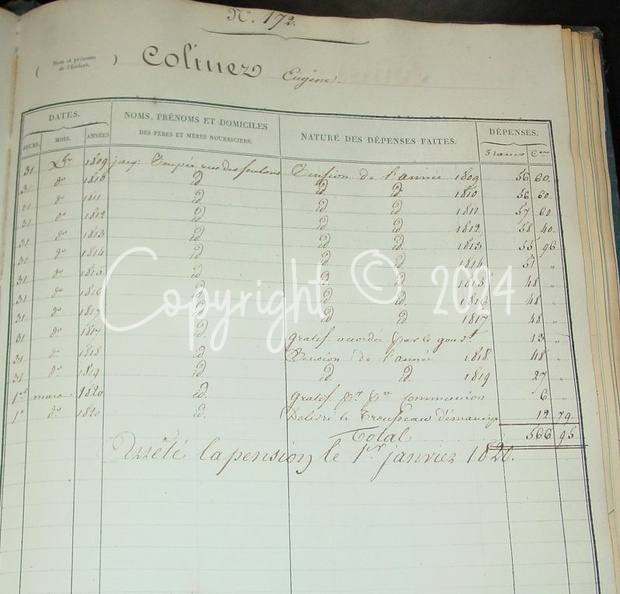 N.º 172.
( Nom et prénoms de l'Enfant. ) Colinez Eugène.
DATES.
JOURS. MOIS. ANNÉES
NOMS, PRÉNOMS ET DOMICILES
DES PÈRES ET MÈRES NOURRICIERS.
NATURE DES DÉPENSES FAITES.
DÉPENSES.
Francs Cmes
31 Xbre 1809 rue des Pension de l'année 1809 56 60.
31 dº 1810 id id id 1810 56 60.
31 dº 1811 id id id 1811 57 60
31 dº 1812 id id id 1812 58 40.
31 dº 1813 id id id 1813 55 96
31 dº 1814 id id id 1814 57 "
31 dº 1815 id id id 1815 48 "
31 dº 1816 id id id 1816 48 "
31 dº 1817 id id id 1817 48 "
31 dº 1817 id gratif accordée par le gouvt 12 "
31 dº 1818 id Pension de l'année 1818 48 "
31 dº 1819 id id id 1819 27 "
1er mars 1820 id. gratif pr 1re Communion 6 "
1er dº 1820 id. Délivré le Trousseau d'émancip 12 79
Total 566 95
Arrêté la pension le 1er janvier 1820.
Copyright © 2024